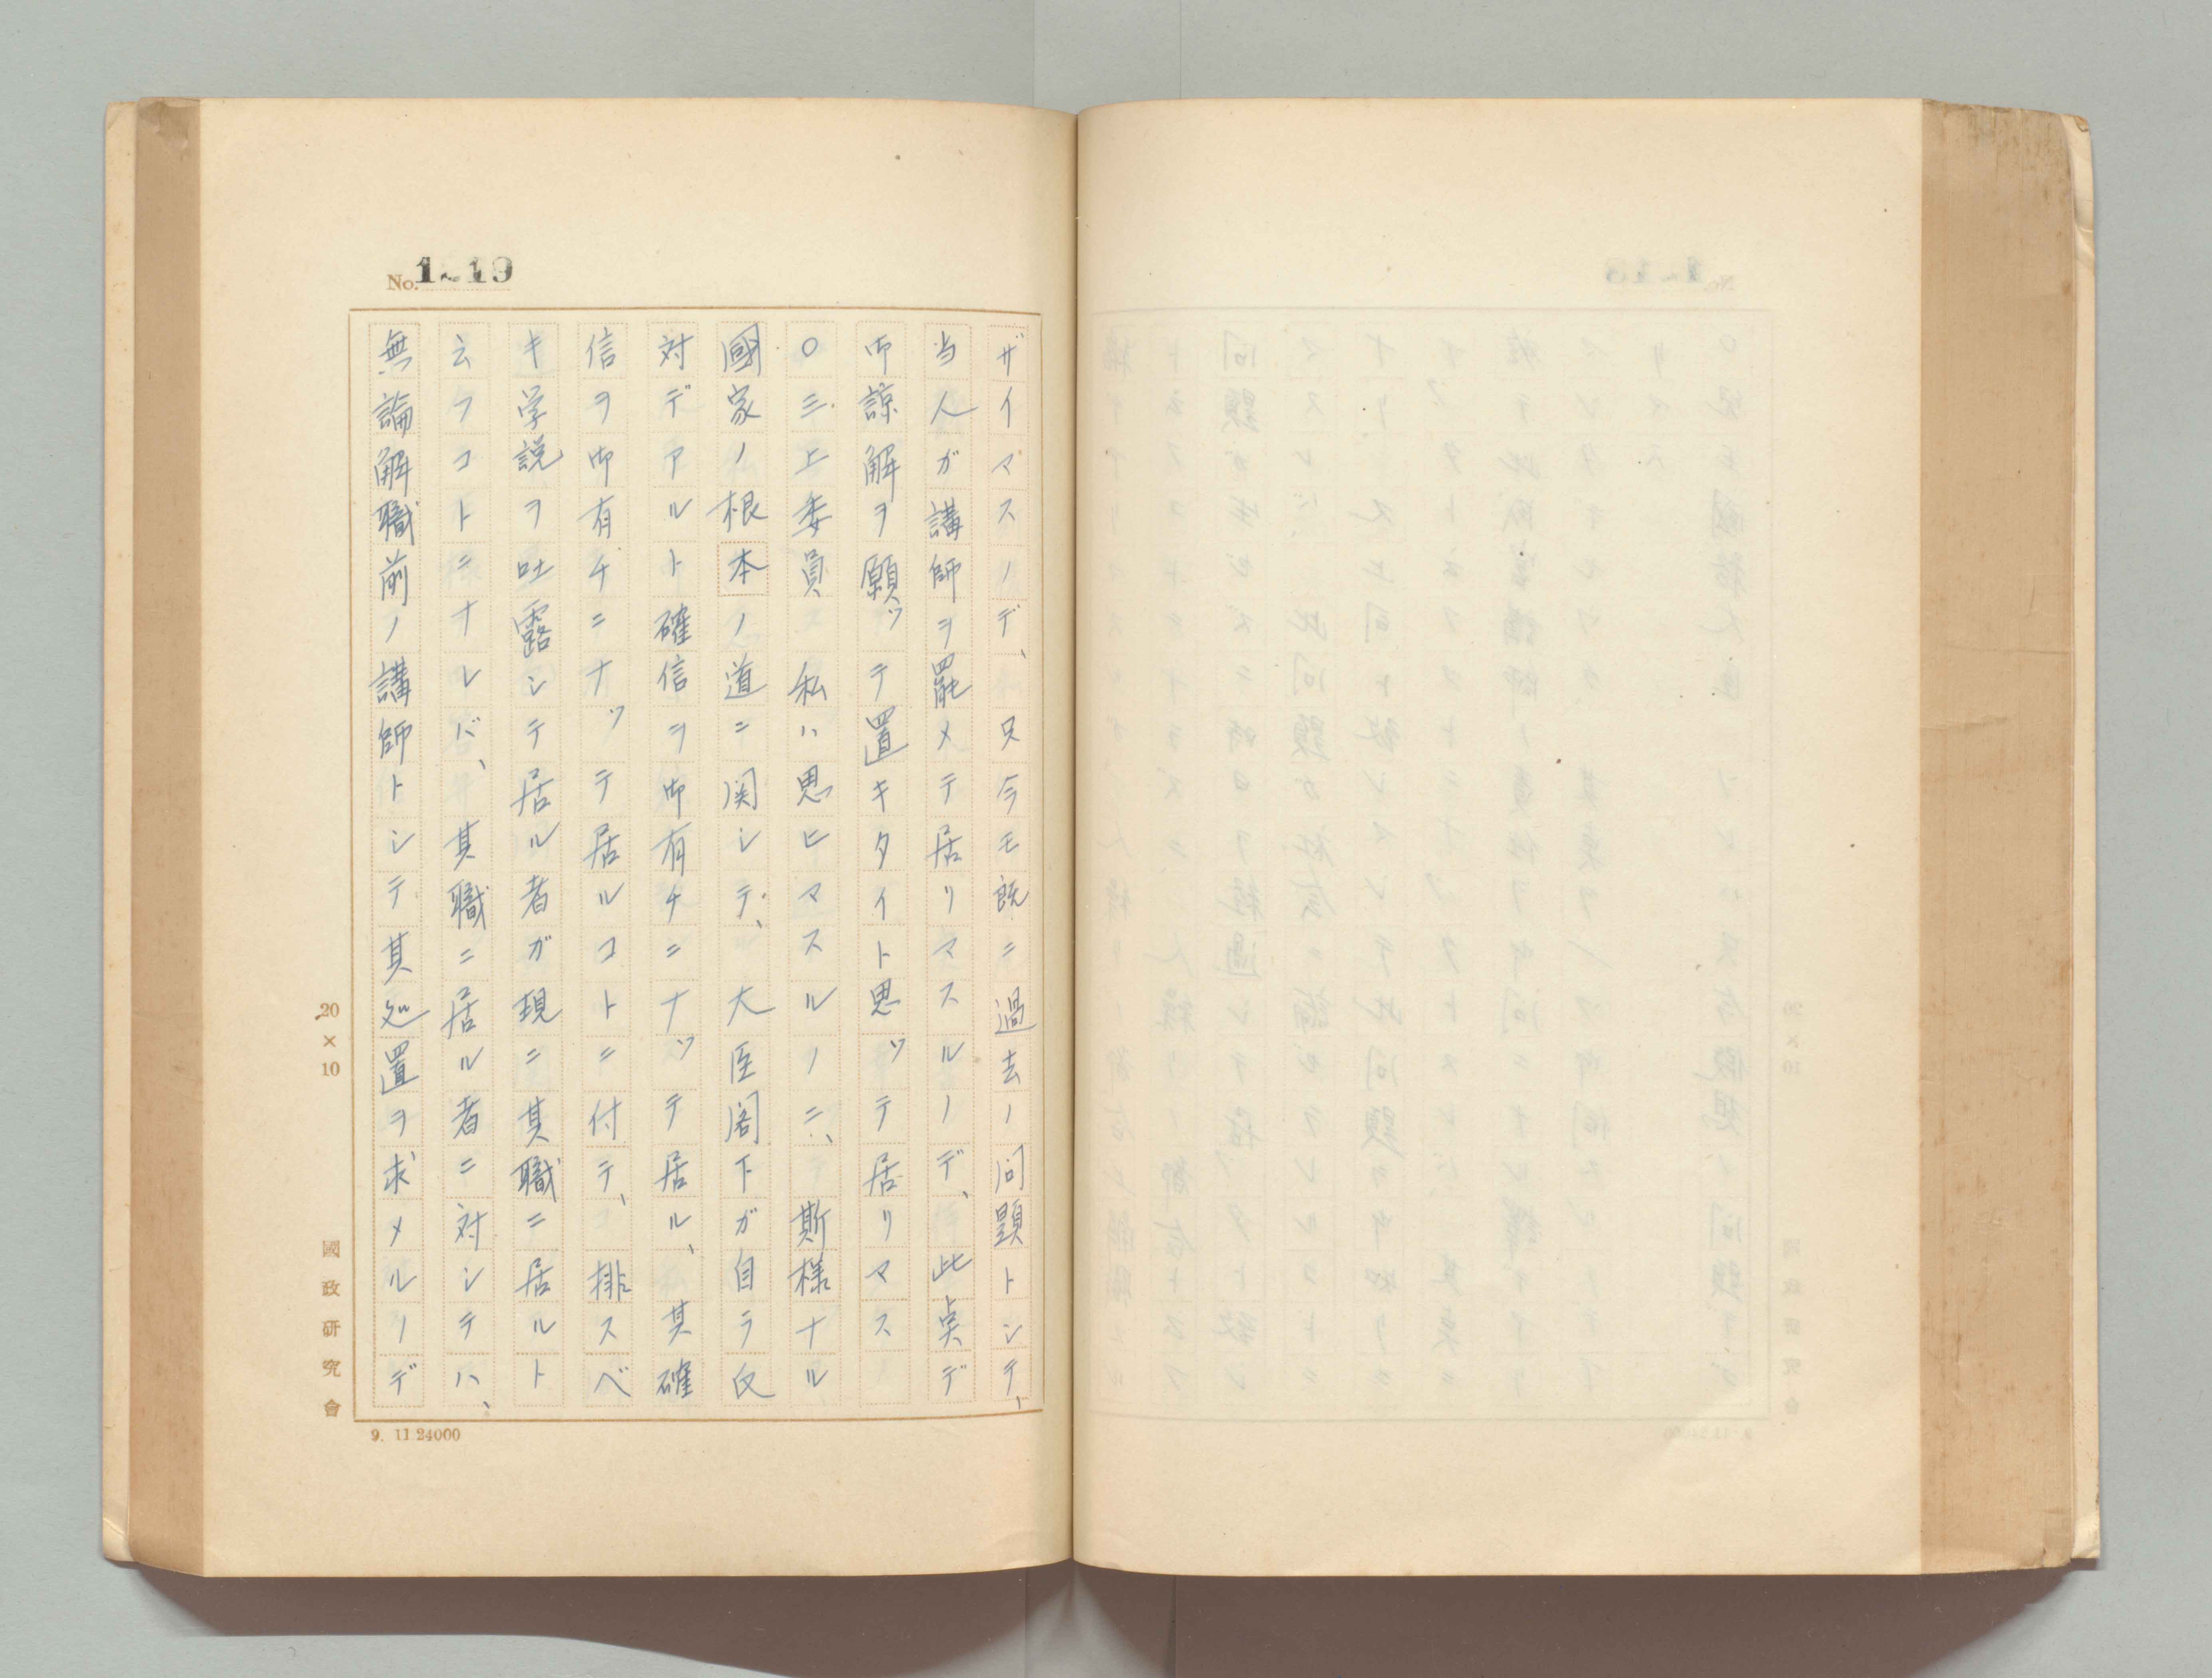 No. 1219
ザイマスノデ、只今モ既ニ過去ノ問題トシテ、
当人ガ講師ヲ罷メテ居リマスルノデ、此点デ
御諒解ヲ願ッテ置キタイト思ッテ居リマス
○三上委員　私ハ思ヒマスルノニ、斯様ナル
國家ノ根本ノ道ニ関シテ、大臣閣下ガ自ラ反
対デアルト確信ヲ御有チニナッテ居ル、其確
信ヲ御有チニナッテ居ルコトニ付テ、排スベ
キ学説ヲ吐露シテ居ル者ガ現ニ其職ニ居ルト
云フコトニナレバ、其職ニ居ル者ニ対シテハ、
無論解職前ノ講師トシテ其処置ヲ求メルノデ
20×10
國政研究會
9. 11.24000